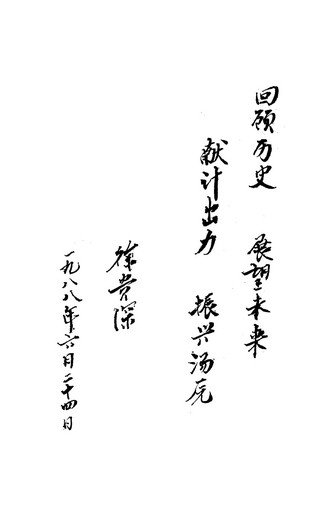 回顾历史 展望未来
献计出力 振兴汤原
徐贵深
一九八八年六月二十四日